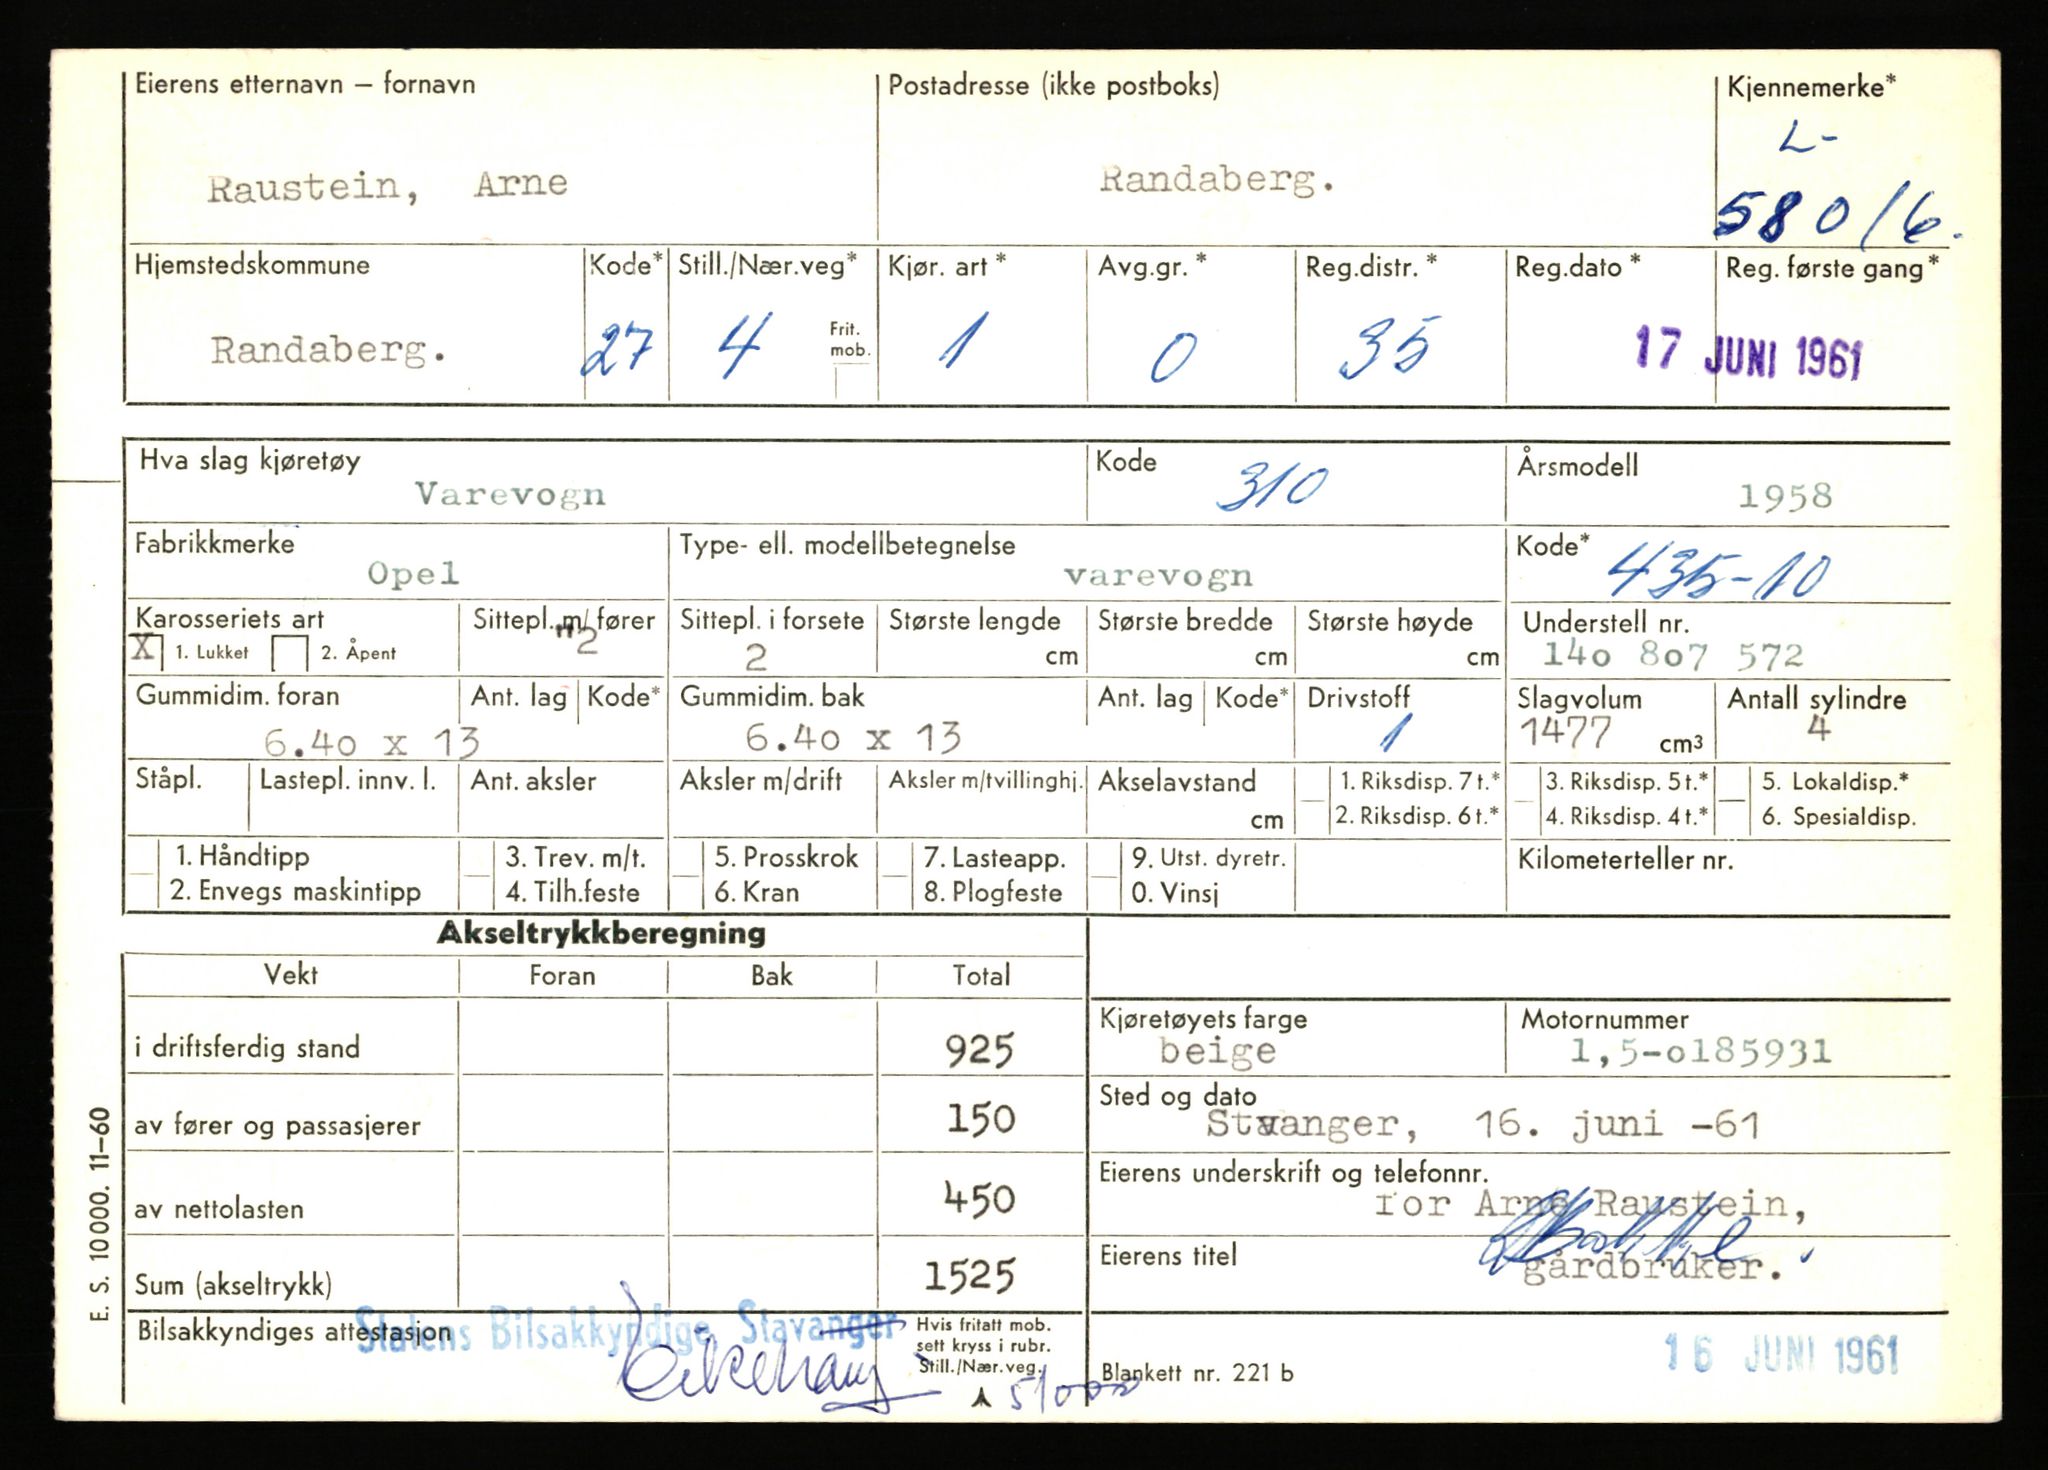 Eierens etternavn – fornavn Postadresse (ikke postboks) Kjennemerke*
L-
Raustein, Arne Randaberg. 58016.
Hjemstedskommune Kode* Still./Nær.veg* Kjør. art* Avg.gr.* Reg.distr.* Reg.dato* Reg. første gang*
Randaberg. 27 4 Frit. mob. 1 0 35 17 JUNI 1961
Hva slag kjøretøy Kode Årsmodell
Varevogn 310 1958
Fabrikkmerke Type- ell. modellbetegnelse Kode*
Opel varevogn 435-10
Karosseriets art Sittepl. m/fører Sittepl. i forsete Største lengde Største bredde Største høyde Understell nr.
X 1. Lukket 2. Åpent "2 2 cm cm cm 14o 8o7 572
Gummidim. foran Ant. lag Kode* Gummidim. bak Ant. lag Kode* Drivstoff Slagvolum Antall sylindre
6.4o x 13 6.4o x 13 1 1477 cm³ 4
Ståpl. Lastepl. innv. l. Ant. aksler Aksler m/drift Aksler m/tvillinghj. Akselavstand 1. Riksdisp. 7 t.* 3. Riksdisp. 5 t.* 5. Lokaldisp.*
cm 2. Riksdisp. 6 t.* 4. Riksdisp. 4 t.* 6. Spesialdisp.
1. Håndtipp 3. Trev. m/t. 5. Prosskrok 7. Lasteapp. 9. Utst. dyretr. Kilometerteller nr.
2. Envegs maskintipp 4. Tilh.feste 6. Kran 8. Plogfeste 0. Vinsj
Akseltrykkberegning
Vekt Foran Bak Total
Kjøretøyets farge Motornummer
i driftsferdig stand 925 beige 1,5-o185931
Sted og dato
av fører og passasjerer 150 Stvanger, 16. juni -61
Eierens underskrift og telefonnr.
av nettolasten 450 for Arne Raustein,
Eierens titel
Sum (akseltrykk) 1525 gårdbruker.
Bilsakkyndiges attestasjon Statens Bilsakkyndige Stavanger
Hvis fritatt mob.
sett kryss i rubr.
Still./Nær.veg.
51000
Blankett nr. 221 b 16 JUNI 1961
E. S. 10000. 11–60